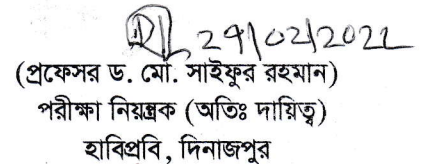 29/02/2022
(প্রফেসর ড. মো. সাইফুর রহমান)
পরীক্ষা নিয়ন্ত্রক (অতিঃ দায়িত্ব)
হাবিপ্রবি, দিনাজপুর